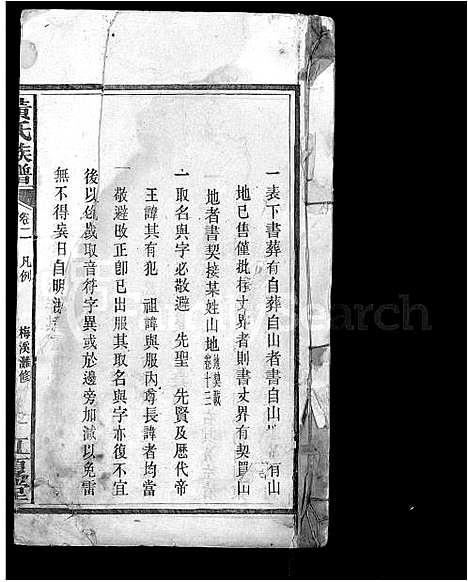 一表下書葬有自葬自山者書自山 有山
地已售僅批檢丈界者則書丈界有契買山
地者書契接某姓山地 地契載卷十三
一取名與字必敬避　先聖　先賢及歷代帝
王諱其有犯　祖諱與服內尊長諱者均當
敬避改正卽已出服其取名與字亦復不宜
後以 或取音符字異或於邊旁加減以免雷
無不得矣日自明
黃氏族譜
卷二　凡例
梅溪 修
江夏堂
FamilySearch